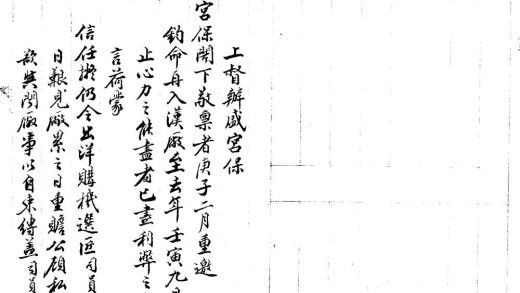 上督辦盛宮保
宮保閣下敬禀者庚子二月重邀
鈞命再入漢廠至去年壬寅九月
止心力之能盡者已盡利弊之
言荷蒙
信任擬仍令出洋購機選匠司員
日艱見廠累之日重瞻公顧私
歉與閱廠事以自束縛蓋司員